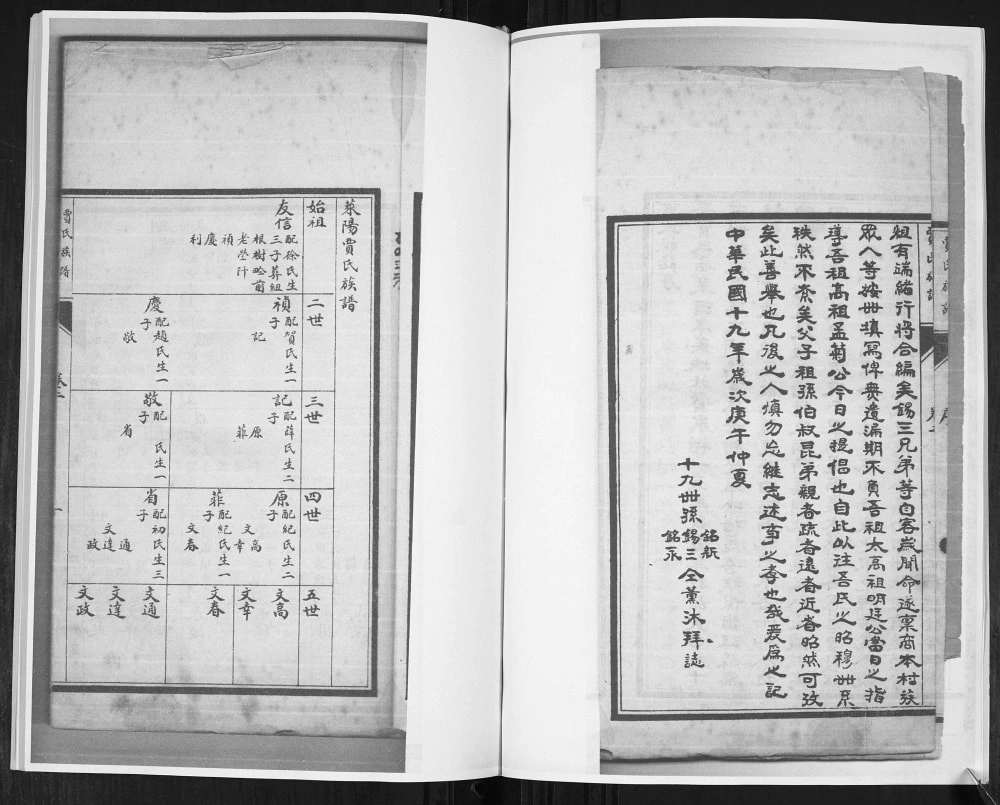 粗有端緒行將合編矣錫三兄弟等自客歲聞命遂稟商本村族
眾人等按世填寫俾無遺漏期不負吾祖太高祖明廷公當日之指
導吾祖高祖孟菊公今日之提倡也自此以往吾氏之昭穆世系
秩然不紊矣父子祖孫伯叔昆弟親者疏者遠者近者昭然可攷
矣此善舉也凡後之人慎勿忘繼志述事之孝也哉爰為之記
中華民國十九年歲次庚午仲夏
十九世孫
錫三
銘永
仝薰沐拜誌
萊陽賈氏族譜
始祖
友信
配徐氏生
三子葬組
根樹昤前
老塋阡
禎
慶
利
二世
禎
配賀氏生一
子
記
慶
配趙氏生一
子
敬
三世
記
配薛氏生二
子
原
菲
敬
配 氏生一
子
省
四世
原
配紀氏生二
子
文高
文幸
菲
配紀氏生一
子
文春
省
配初氏生三
子
文通
文達
文政
五世
文高
文幸
文春
文通
文達
文政
賈氏族譜